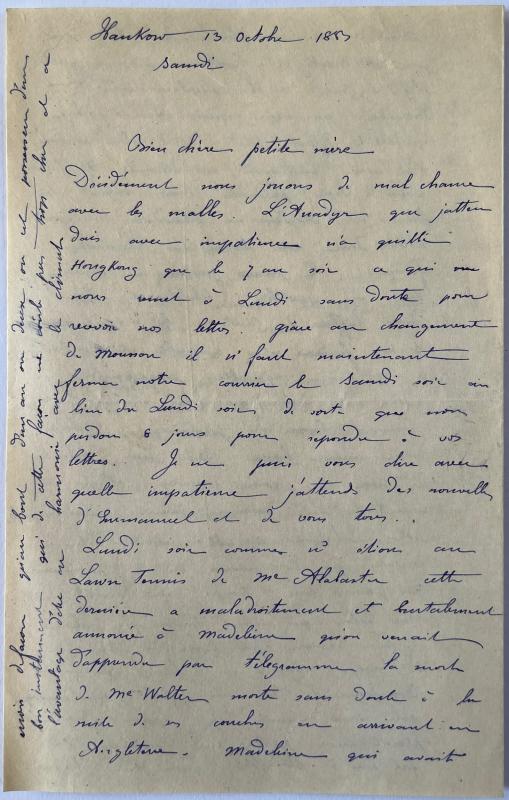 Hankow 13 Octobre 1883
Samdi
Bien chère petite mère
Décidément nous jouons de mal chance
avec les malles. L'Anadyr que j'atten
dais avec impatience n'a quitté
HongKong que le 7 au soir ce qui
nous remet à Lundi sans doute pour
recevoir nos lettres. grâce au changement
de mousson il n' faut maintenant
fermer notre courrier le Samdi soir au
lieu du Lundi soir de sorte que nous
perdons 6 jours pour répondre à vos
lettres. Je ne puis vous dire avec
quelle impatience j'attends des nouvelles
d'Emmanuel et de vous tous..
Lundi soir comme n' étions au
Lawn Tennis de Me Alabaster cette
dernière a maladroitement et brutalement
annoncé à Madeleine qu'on venait
d'apprendre par télégramme la mort
de Me Walter morte sans doute à la
suite de ses couches en arrivant en
Angleterre. Madeleine qui avait
mois de façon qu'au bout d'un an ou deux on est possesseur d'un
bon instrument qui de cette façon ne coûte pas trop cher et a
l'avantage d'être en harmonie avec le climat